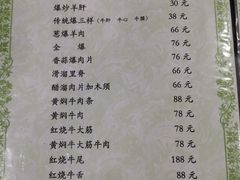 爆炒羊肝 30 元
传统爆三样(牛肝 牛心 牛腰) 38 元
葱爆羊肉 66 元
全爆 76 元
香蒜爆肉片 76 元
滑溜里脊 66 元
醋溜肉片加木须 66 元
黄焖牛肉条 88 元
黄焖牛肉 78 元
红烧牛大筋 78 元
黄焖牛大筋牛肉 78 元
红烧牛尾 188 元
红烧牛舌 88 元